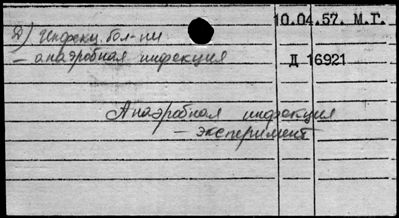 10.04.57. М.Г.
2) Инфекц. бол-ни
– анаэробная инфекция
Д 16921
Анаэробная инфекция
– эксперимент